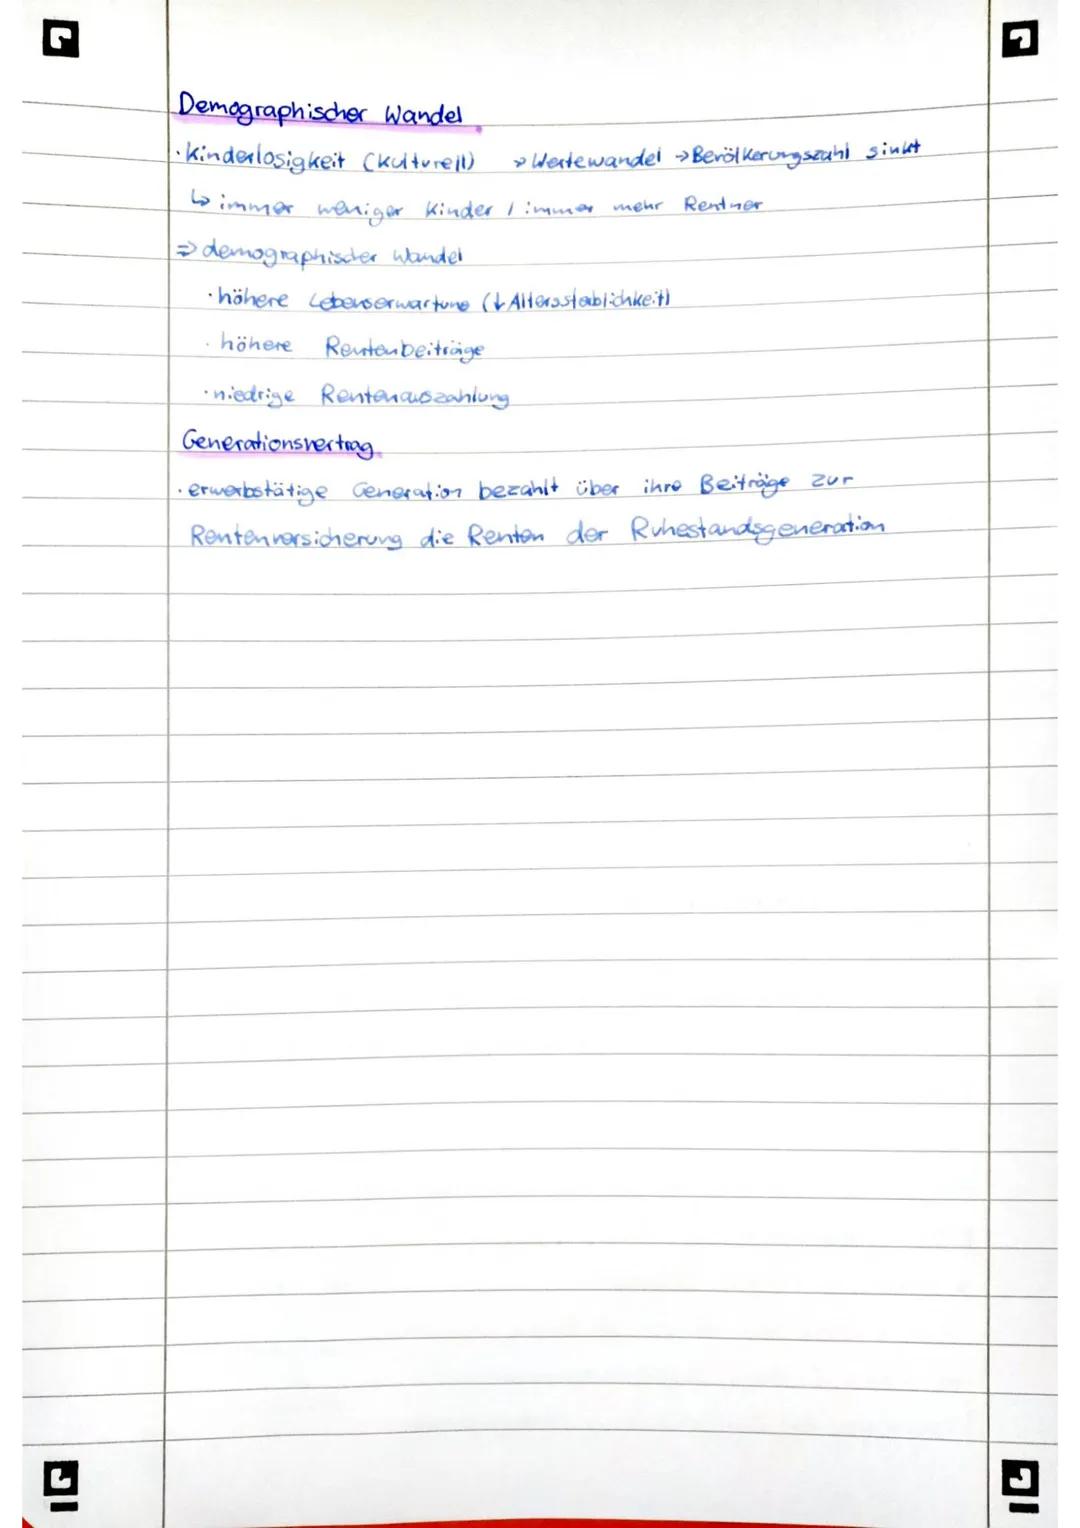 Demographischer Wandel
· Kinderlosigkeit (kulturell) → Wertewandel → Bevölkerungszahl sinkt
↳ immer weniger Kinder / immer mehr Rentner
⇒ demographischer Wandel
· höhere Lebenserwartung (↓ Alterssterblichkeit)
· höhere Rentenbeiträge
· niedrige Rentenauszahlung
Generationsvertrag
· erwerbstätige Generation bezahlt über ihre Beiträge zur
Rentenversicherung die Renten der Ruhestandsgeneration